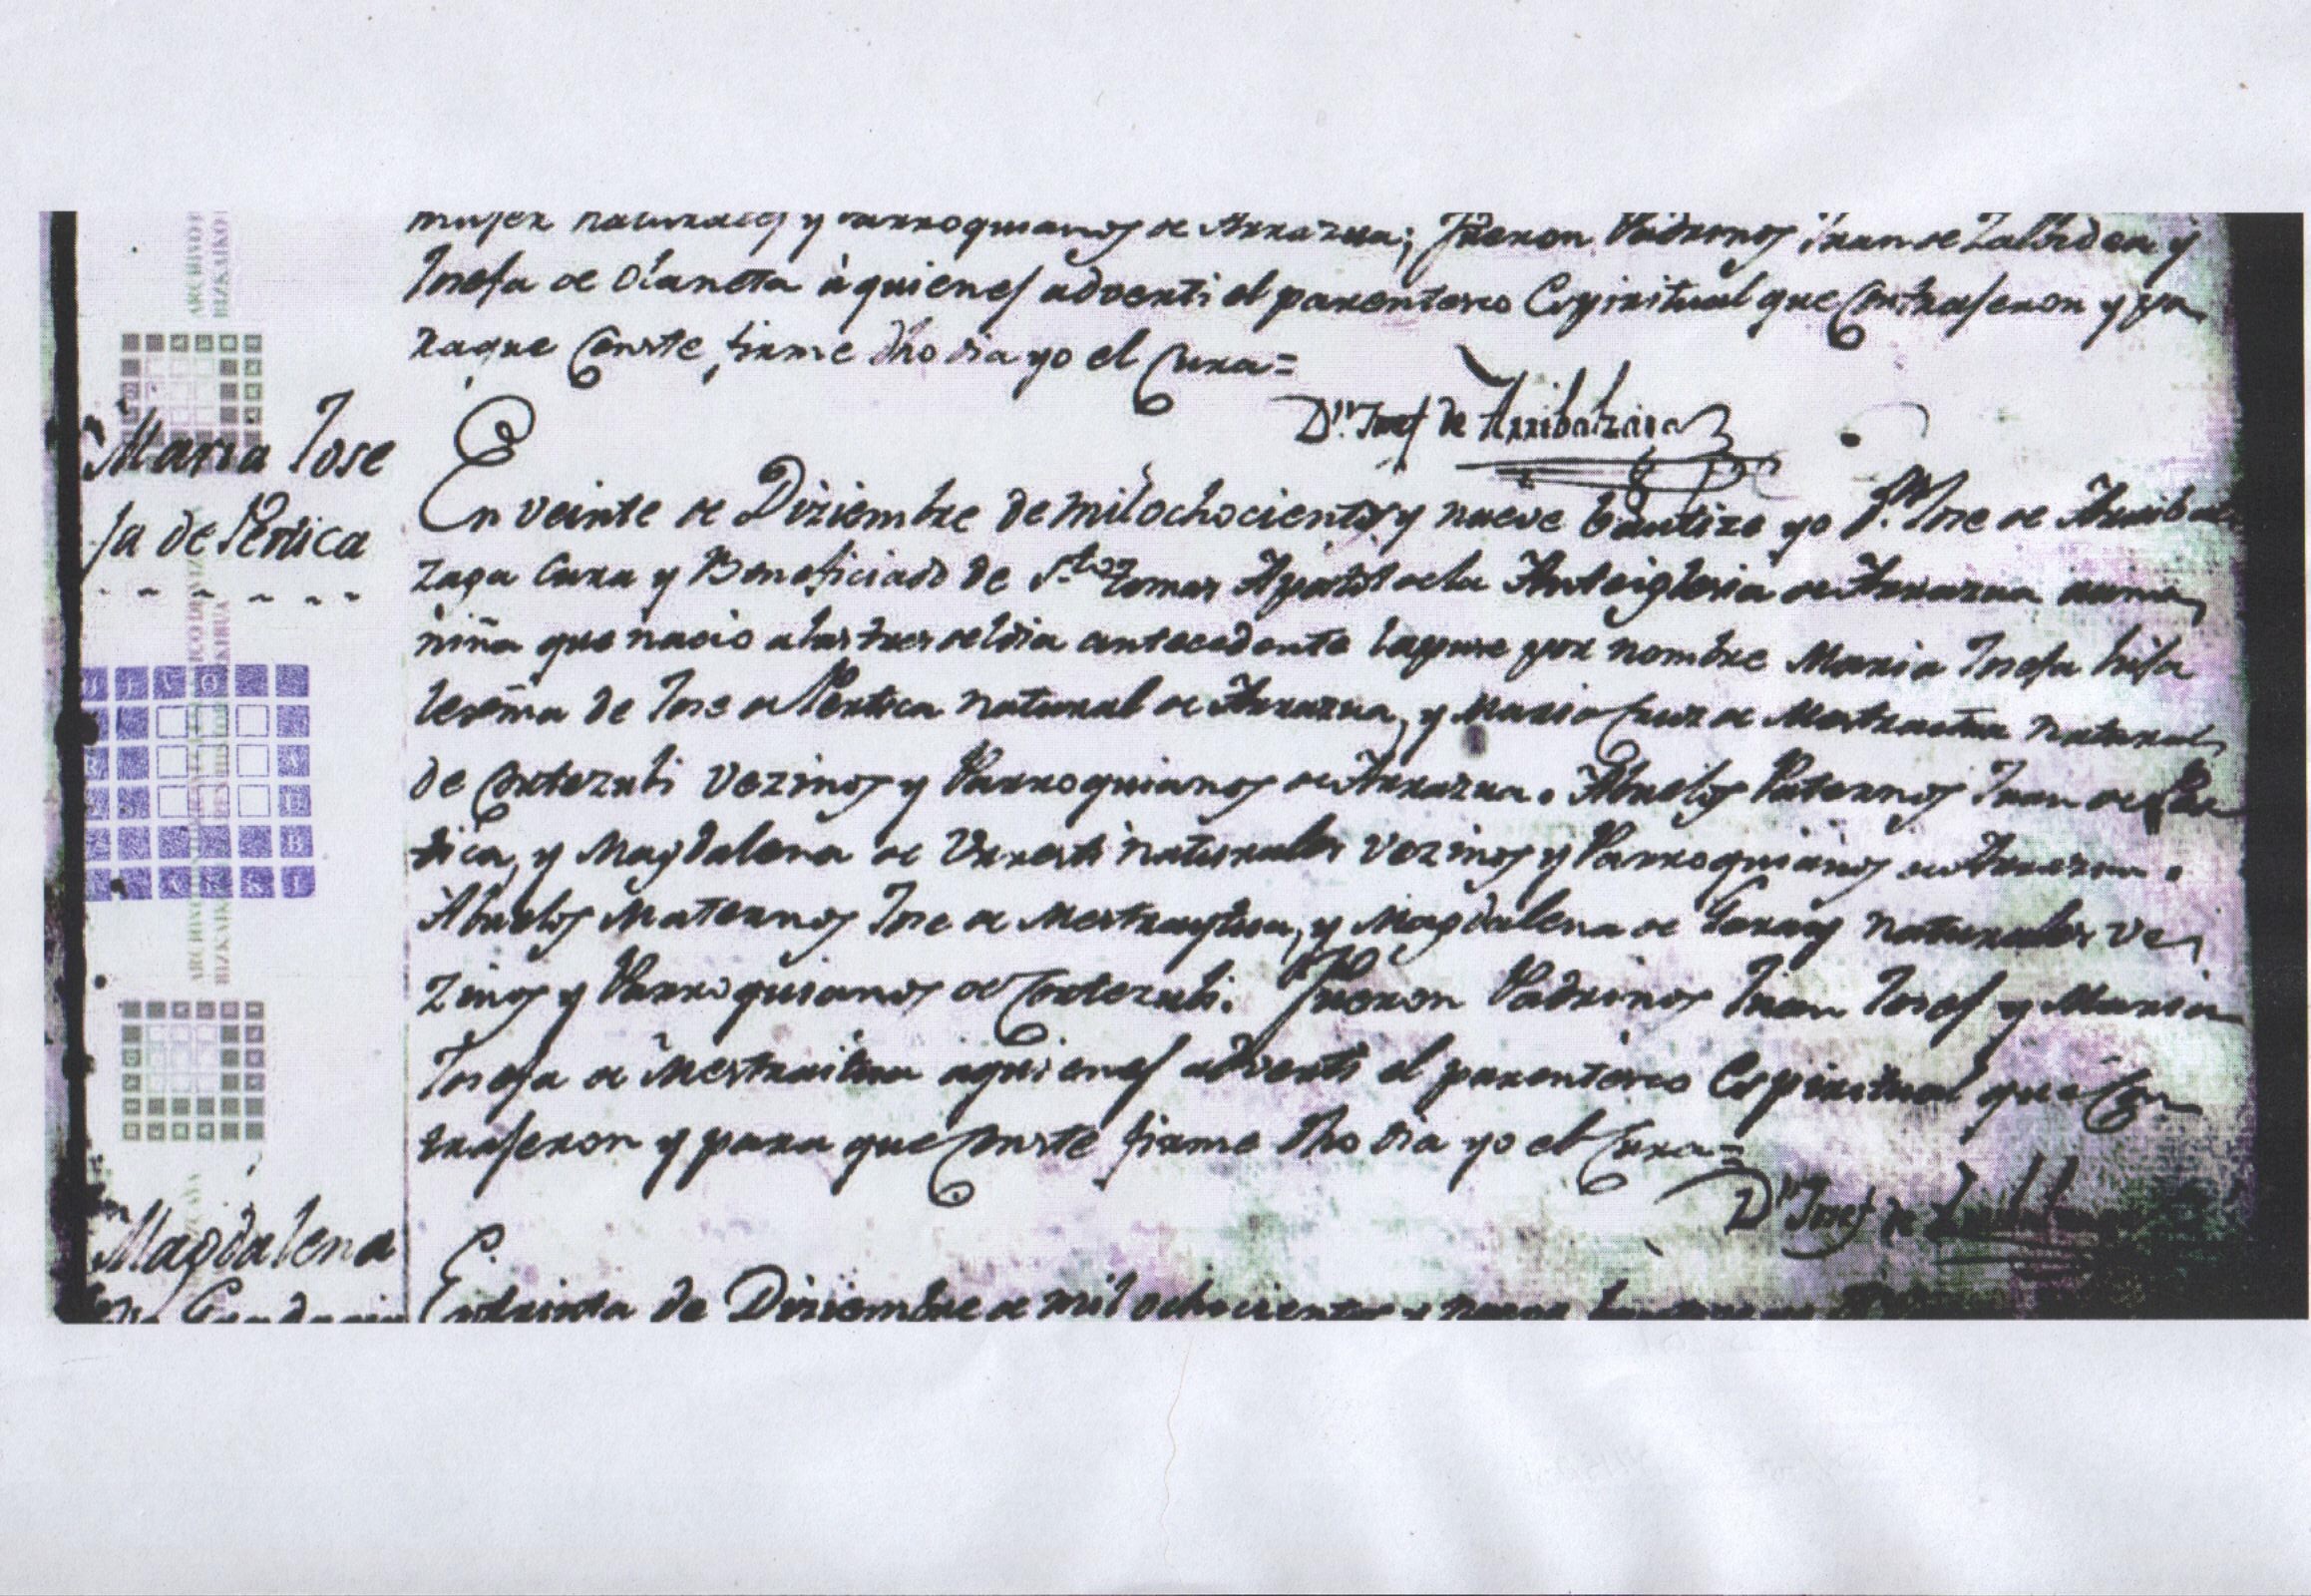 muger naturales y Parroquianos de Arrazua; fueron Padrinos Juan de Zallbidea y
Josefa de Olaneta à quienes adverti el parentesco Espiritual que Contrageron y pa
raque Conste, firme dho dia yo el Cura=
Dn. Josef de Arribalzaga
Maria Jose
fa de Pertica
En veinte de Diziembre de mil ochocientos y nueve bautize yo Dn. Jose de Arribal
zaga Cura y Beneficiado de Sto. Tomas Apostol de la Anteiglesia de Arrazua auna
niña que nacio alas tres del dia antecedente la puse por nombre Maria Josefa hija
lexma de Jose de Pertica natural de Arrazua, y Maria Cruz de Mestraitua natural
de Cortezubi Vezinos y Parroquianos de Arrazua. Abuelos Paternos Juan de Per
tica, y Magdalena de Urresti naturales Vezinos y Parroquianos de Arrazua.
Abuelos Maternos Jose de Mestraytua, y Magdalena de Garay naturales Ve
zinos y Parroquianos de Cortezubi. Fueron Padrinos Juan Josef y Maria
Josefa de Mestraitua aquienes adverti el parentesco Espiritual que Con
trageron y para que Conste firme dho dia yo el Cura=
Dn Josef de
Magdalena
En treinta de Diziembre de mil ochocientos y nueve